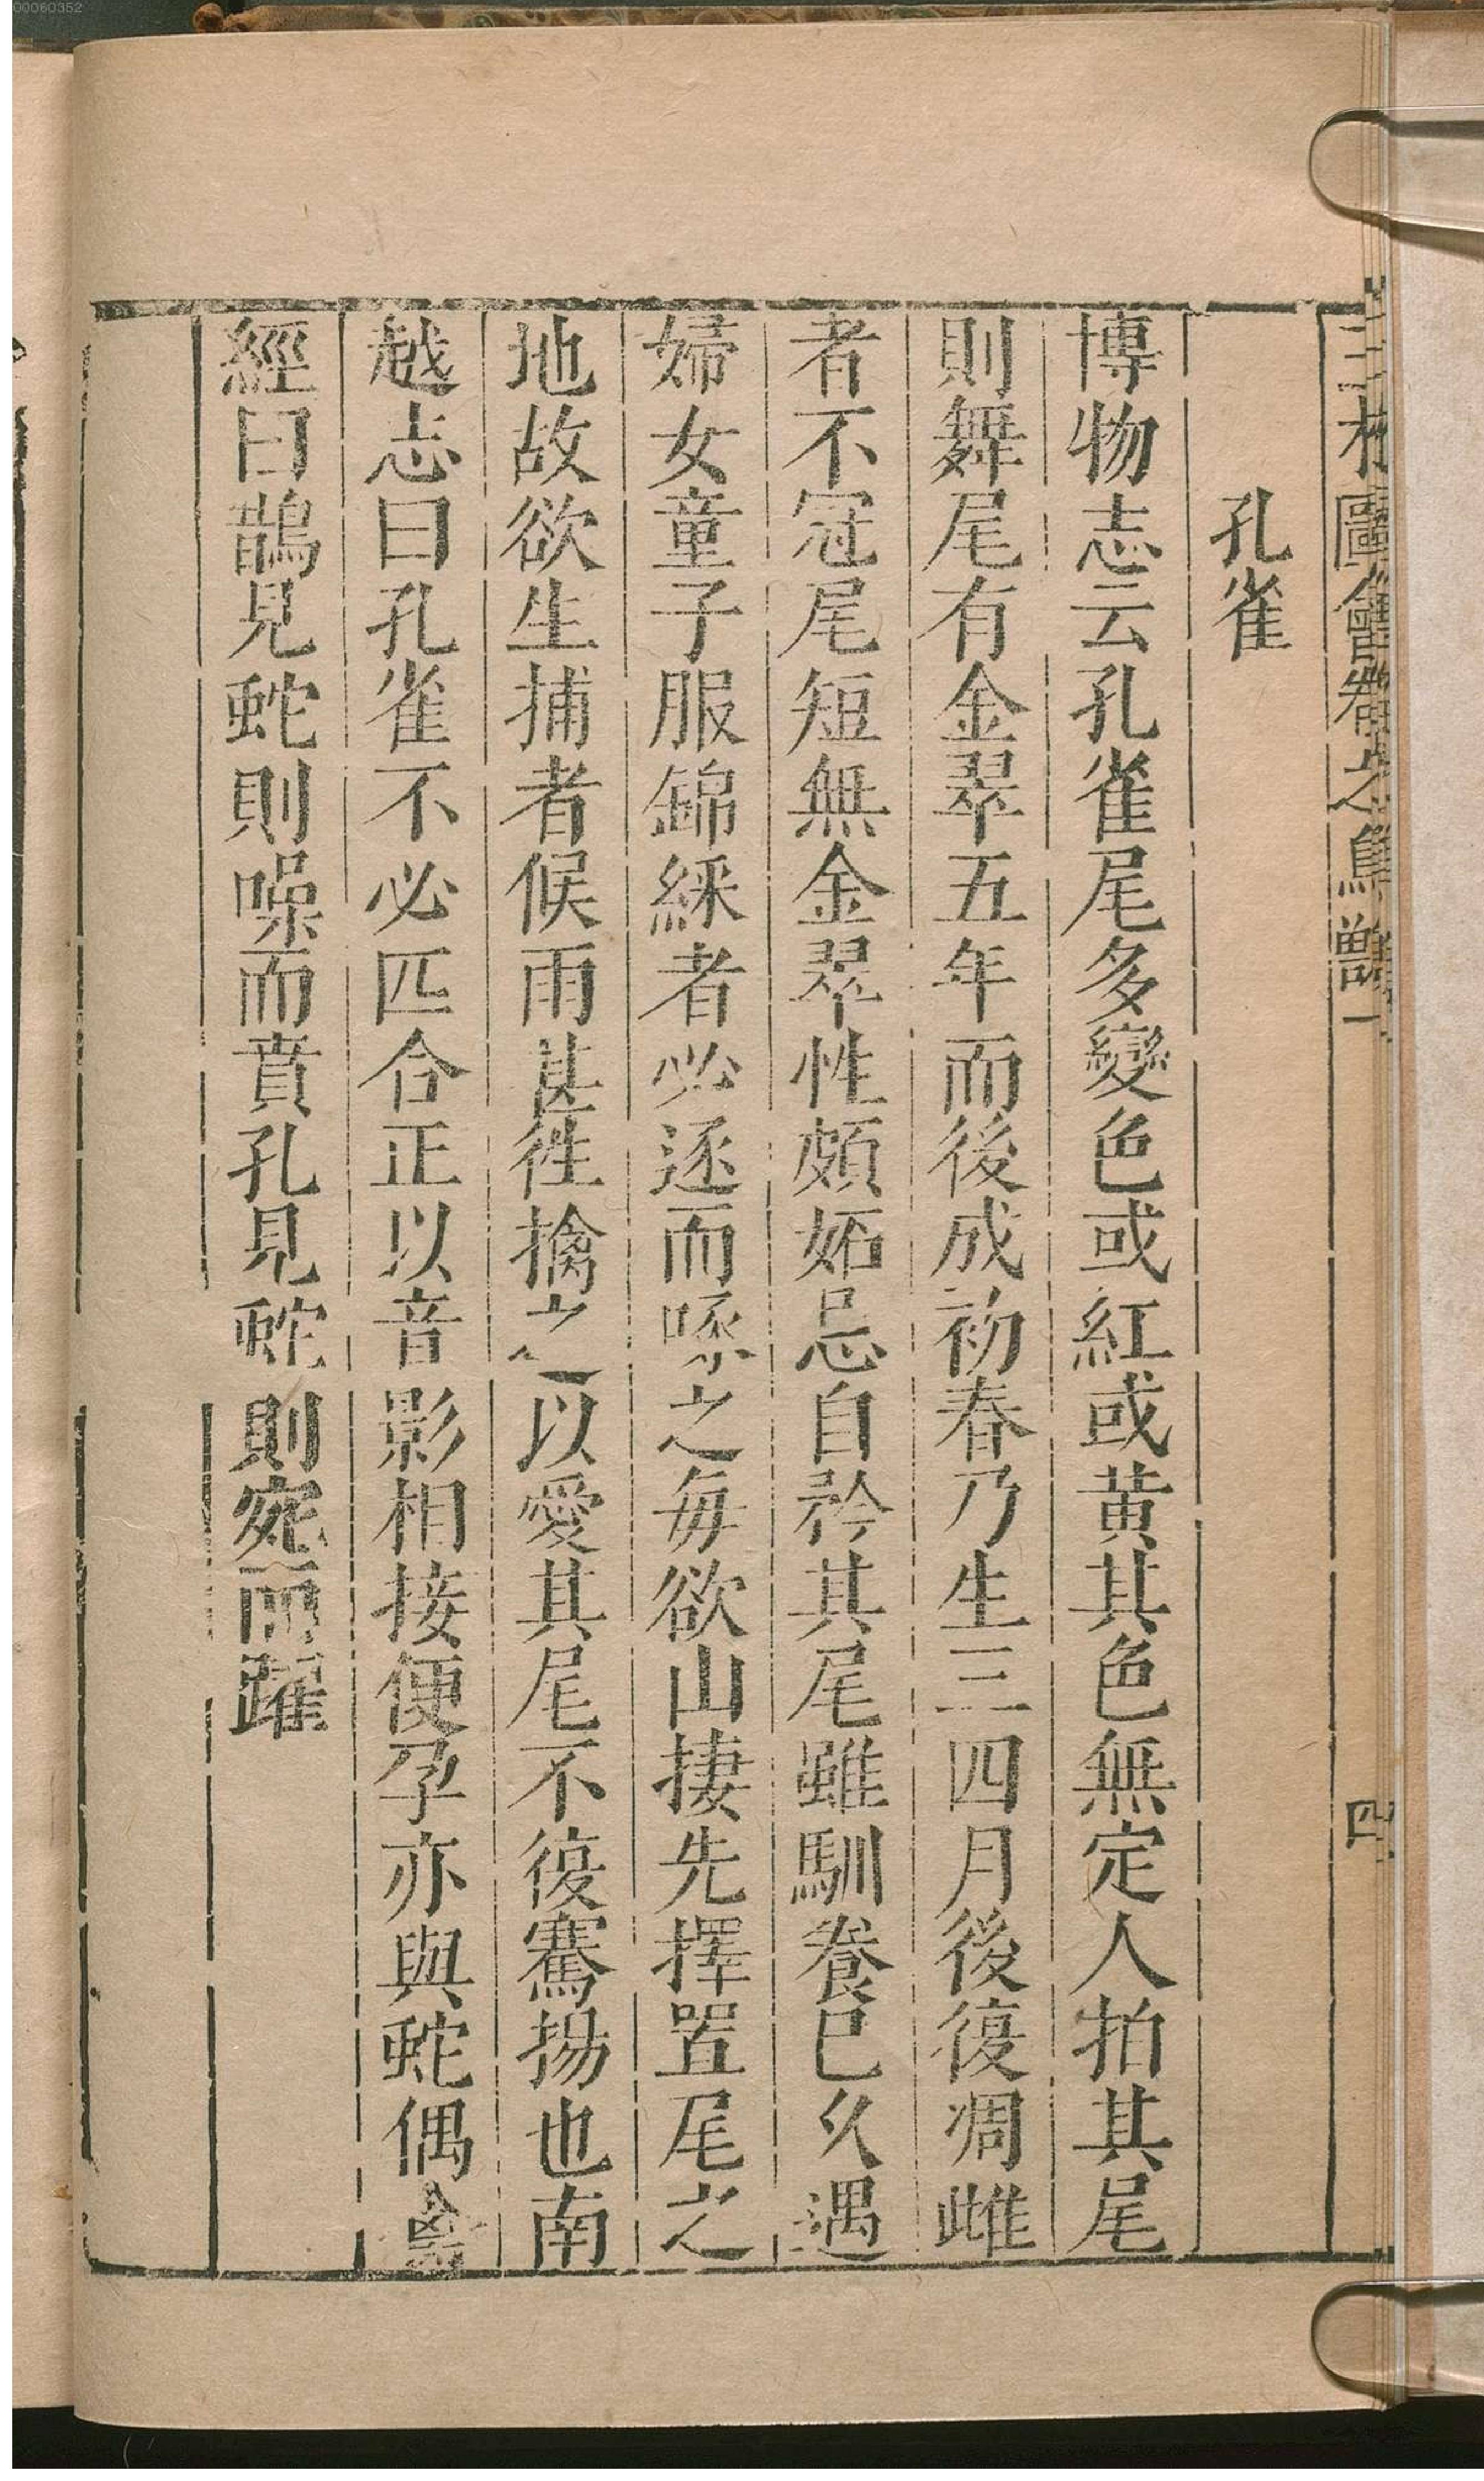 三才圖會卷之鳥獸一 四
孔雀
博物志云孔雀尾多變色或紅或黄其色無定人拍其尾
則舞尾有金翠五年而後成初春乃生三四月後復凋雌
者不冠尾短無金翠性頗妬忌自矜其尾雖馴養已久遇
婦女童子服錦綵者必逐而啄之毎欲山捿先擇置尾之
地故欲生捕者候雨甚徃擒之以愛其尾不復騫揚也南
越志曰孔雀不必匹合正以音影相接便孕亦與蛇偶禽
經曰鵲見蛇則噪而賁孔見蛇則宛而躍
00060352